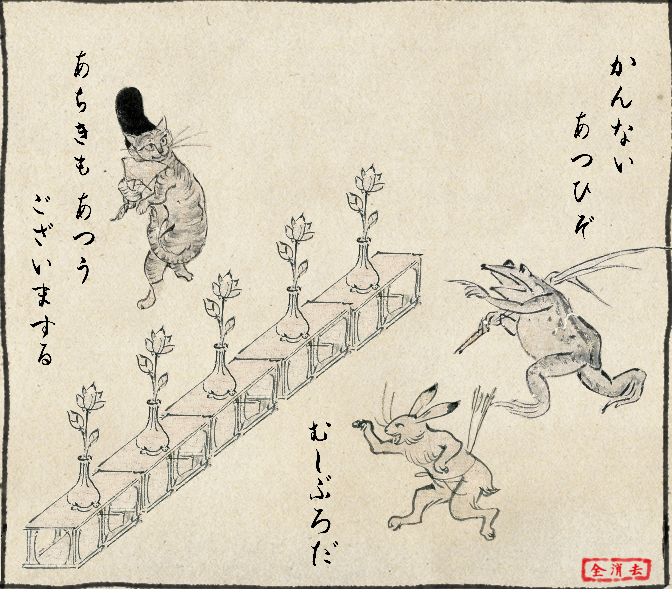 かんない
あつひぞ
むしぶろだ
あちきも あつう
ございまする
全消去